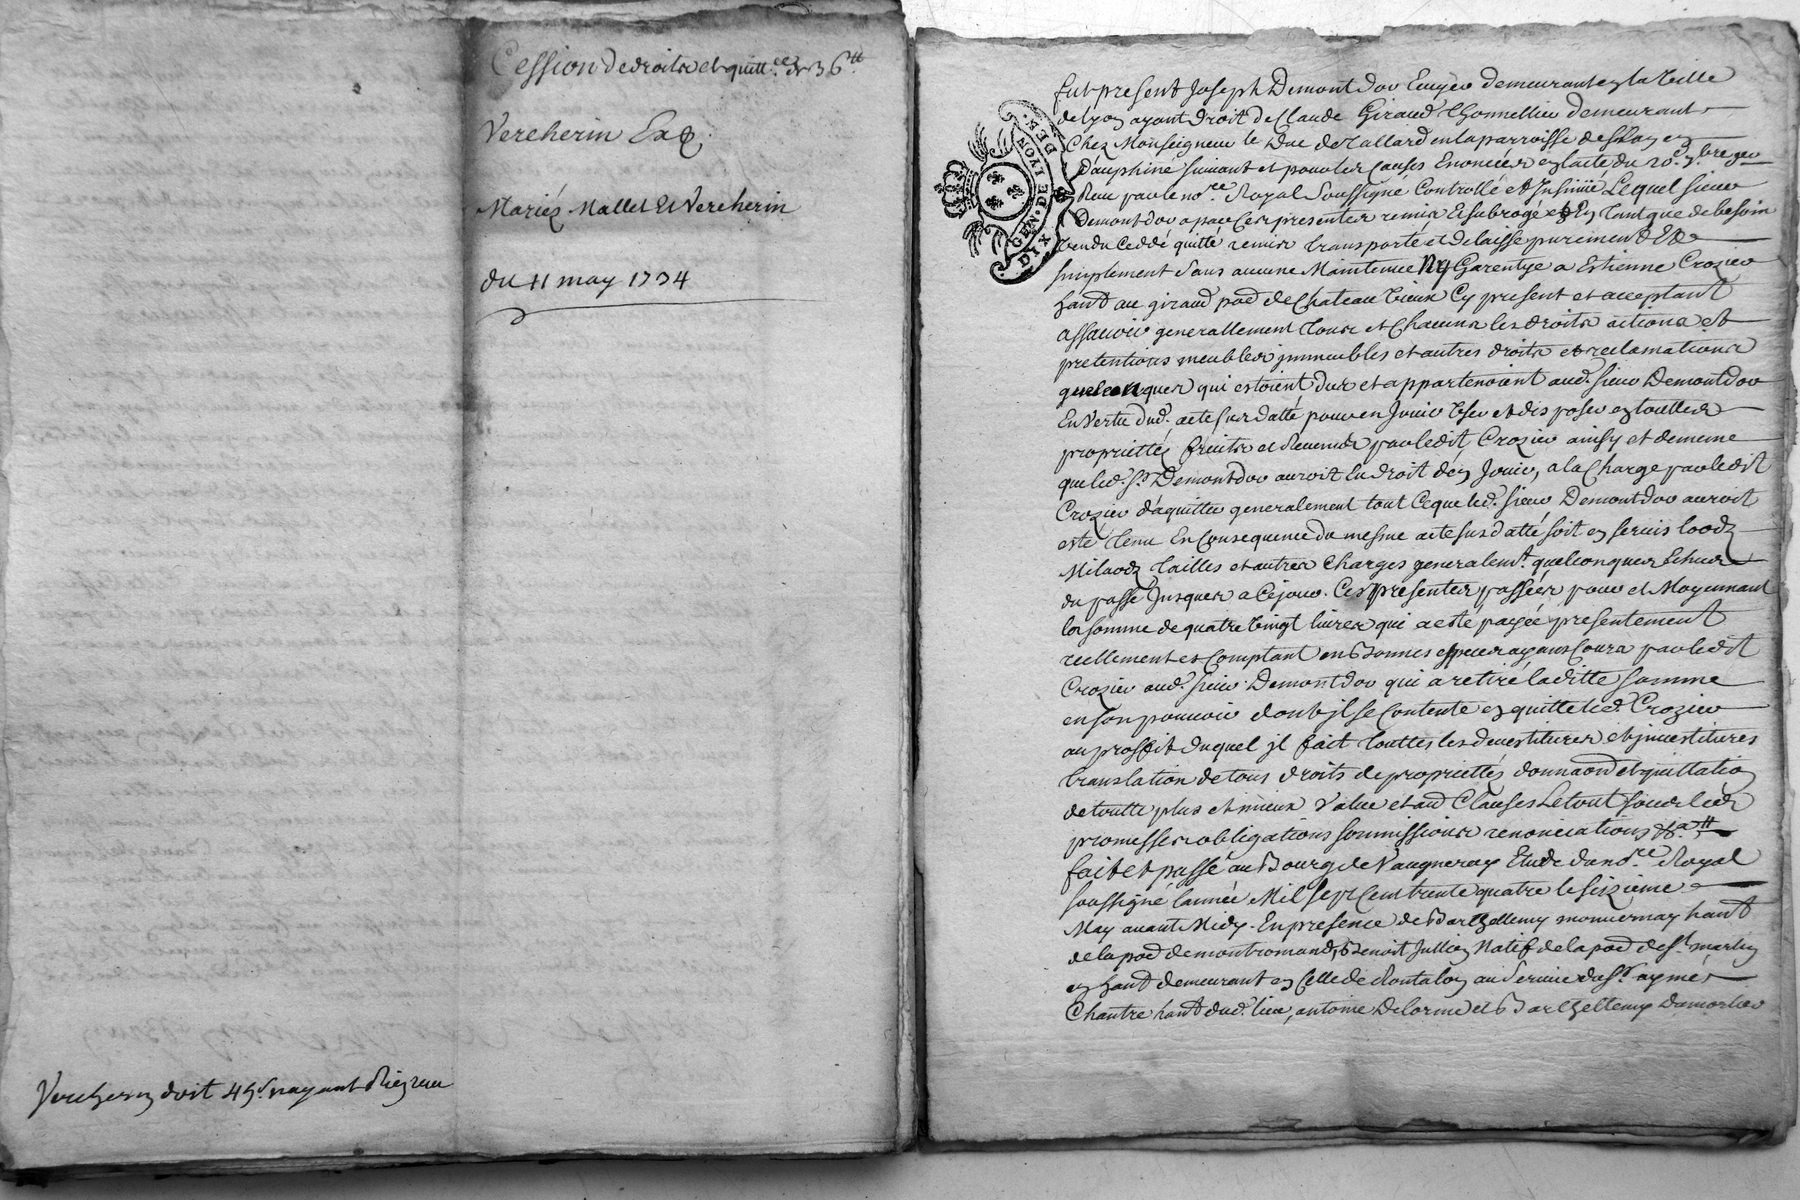 Cession de droits et quitt.ce de 36 tt
Vercherin Ex
Mariez Mallet et Vercherin
du 11 may 1734
Vercherin doit 45 s. nayant Rien receu
DIX DEN. GEN. DE LYON
fut present Joseph Demontdor Ecuyer demeurant en la Ville
de Lyon ayant droit de Claude Giraud thonnellier demeurant
Chez Monseigneur le Duc de Tallard en la parroisse de
Dauphiné suivant et pour les causes Enoncées en l'acte du 20e 7bre
Receu par le no.re Royal Soussigné Controllé et Insinué Lequel sieur
Demontdor a par Ces presentes remis et subrogé et En tant que de besoin
vendu Ceddé quitté remis transporté et delaissé purement Et
simplement sans aucune Maintenue Ny Garentye a Estienne Crozier
hant au giraud pad de Chateau vieux Cy present et acceptant
assavoir generallement tous et Chacuns les droits actions et
pretentions meubles immeubles et autres droits et reclamations
quelconques qui estoient dus et appartenoient aud. sieur Demontdor
En Vertu dud. acte sus datté pour en Jouir User et disposer en touttes
proprietés fruits et Revenus par ledit Crozier ainsy et de meme
que led. Sr. Demontdor auroit Eu droit den Jouir, a la Charge par ledit
Crozier d'aquitter generalement tout Ceque led. sieur Demontdor auroit
esté tenu En Consequence du mesme acte sus datté soit en servis loods
Milaods tailles et autres Charges generalemt. quelconques Echues
du passé Jusques a Cejour. Ces presentes passées pour et Moyennant
la somme de quatre vingt livres qui a esté payée presentement
reellement et Comptant en Bonnes especes ayans Cours par ledit
Crozier aud. sieur Demontdor qui a retiré laditte somme
en son pouvoir dont il se Contente en quitte led. Crozier
au proffit duquel il fait touttes les devestitures et investitures
translation de tous droits de proprietés donnaon et quittation
de toutte plus et mieux Value et aud Clauses Le tout sous les
promesses obligations soumissions renonciations &a
fait et passé au Bourg de Vaugneray Etude du no.re Royal
soussigné l'année Mil sept Cent trente quatre le seizieme
May avant Midy. En presence de Barthellemy monnermay hant
de la pad de montromand, Benoit Jullien Natif de la pad de St. martin
en haut demeurant en Celle de Rontalon au service du Sr aymé
Chantre hant dud. lieu, antoine Delorme et Barthellemy Damorlier